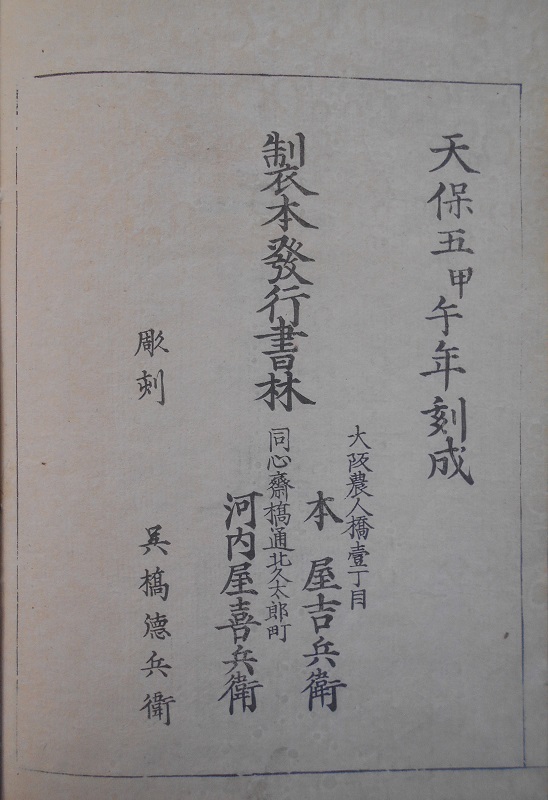 天保五甲午年刻成
製本發行書林
大阪農人橋壹丁目
本屋吉兵衛
同心齋橋通北久太郎町
河内屋喜兵衛
彫刻
呉橋德兵衛